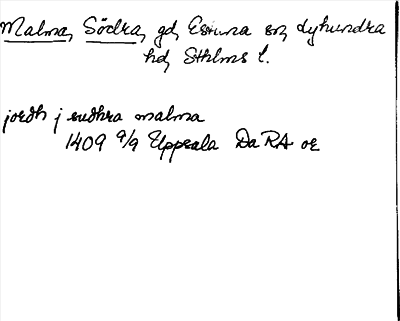 Malma, Södra, gd, Estuna sn, Lyhundra
hd, Sthlms l.
jordh j sudhra malma
1409 9/9 Uppsala Da RA oe